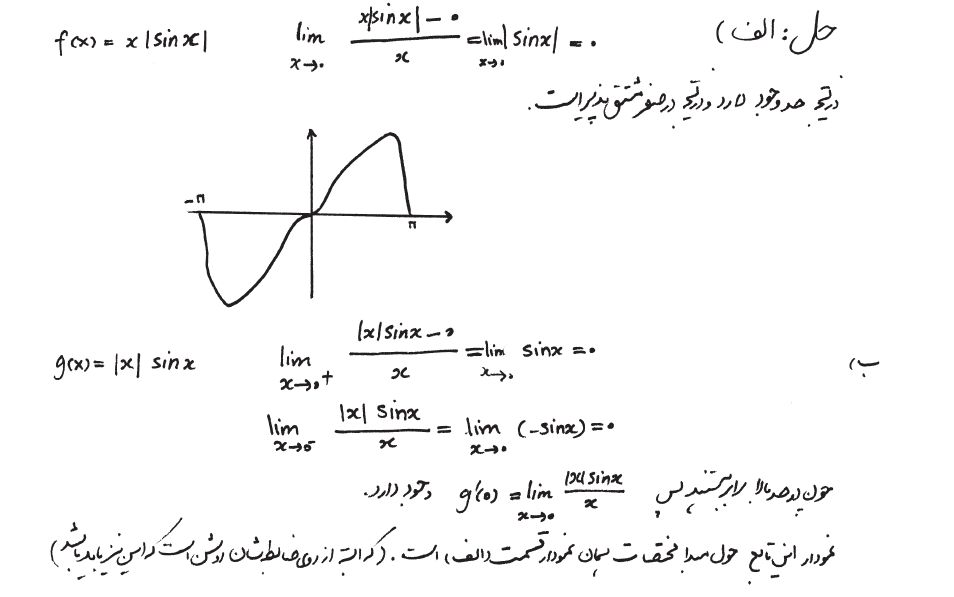 حل: الف) f(x) = x |sin x| lim x→۰ x|sinx| − ۰ / x = lim x→۰ |sinx| = ۰
در نتیجه حد وجود دارد و در نتیجه در صفر مشتق پذیر است.
−π π
ب) g(x) = |x| sin x lim x→۰+ |x|sinx − ۰ / x = lim x→۰ sinx = ۰
lim x→۰− |x| sinx / x = lim x→۰ (−sinx) = ۰
چون دو حد بالا برابر هستند پس g'(۰) = lim x→۰ |x|sinx / x وجود دارد.
نمودار این تابع حول مبدا مختصات همان نمودار قسمت (الف) است. (که البته از روی ضابطه‌شان روشن است که این نیز باید باشد)